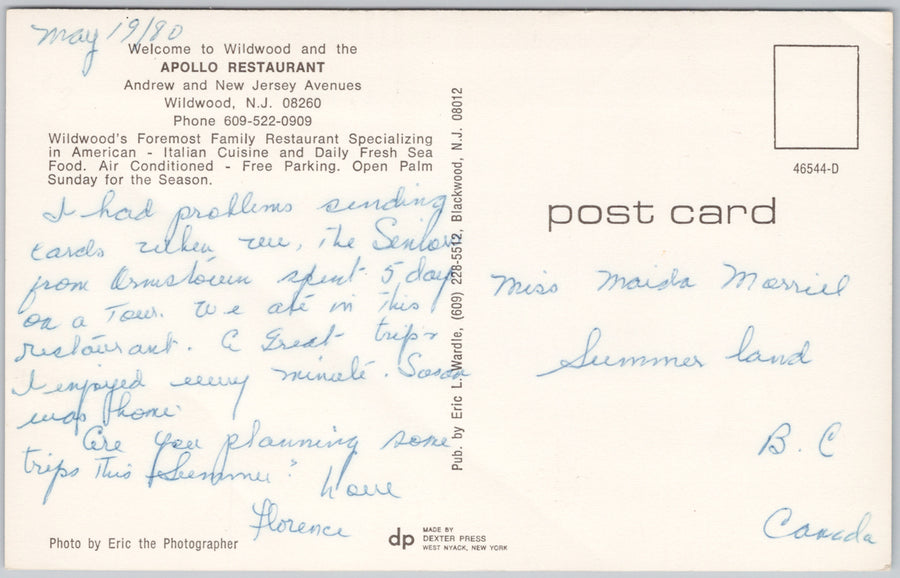 May 19/80
Welcome to Wildwood and the
APOLLO RESTAURANT
Andrew and New Jersey Avenues
Wildwood, N.J. 08260
Phone 609-522-0909
Wildwood's Foremost Family Restaurant Specializing
in American - Italian Cuisine and Daily Fresh Sea
Food. Air Conditioned - Free Parking. Open Palm
Sunday for the Season.
I had problems sending
cards when we, the Seniors
from Ormstown spent 5 days
on a Tour. We ate in this
restaurant. A Great trip &
I enjoyed every minute. Susan
was home
Are you planning some
trips this Summer?
Love
Florence
Photo by Eric the Photographer
Pub. by Eric L. Wardle, (609) 228-5512, Blackwood, N.J. 08012
dp
MADE BY
DEXTER PRESS
WEST NYACK, NEW YORK
46544-D
post card
Miss Maida Morrill
Summerland
B. C
Canada